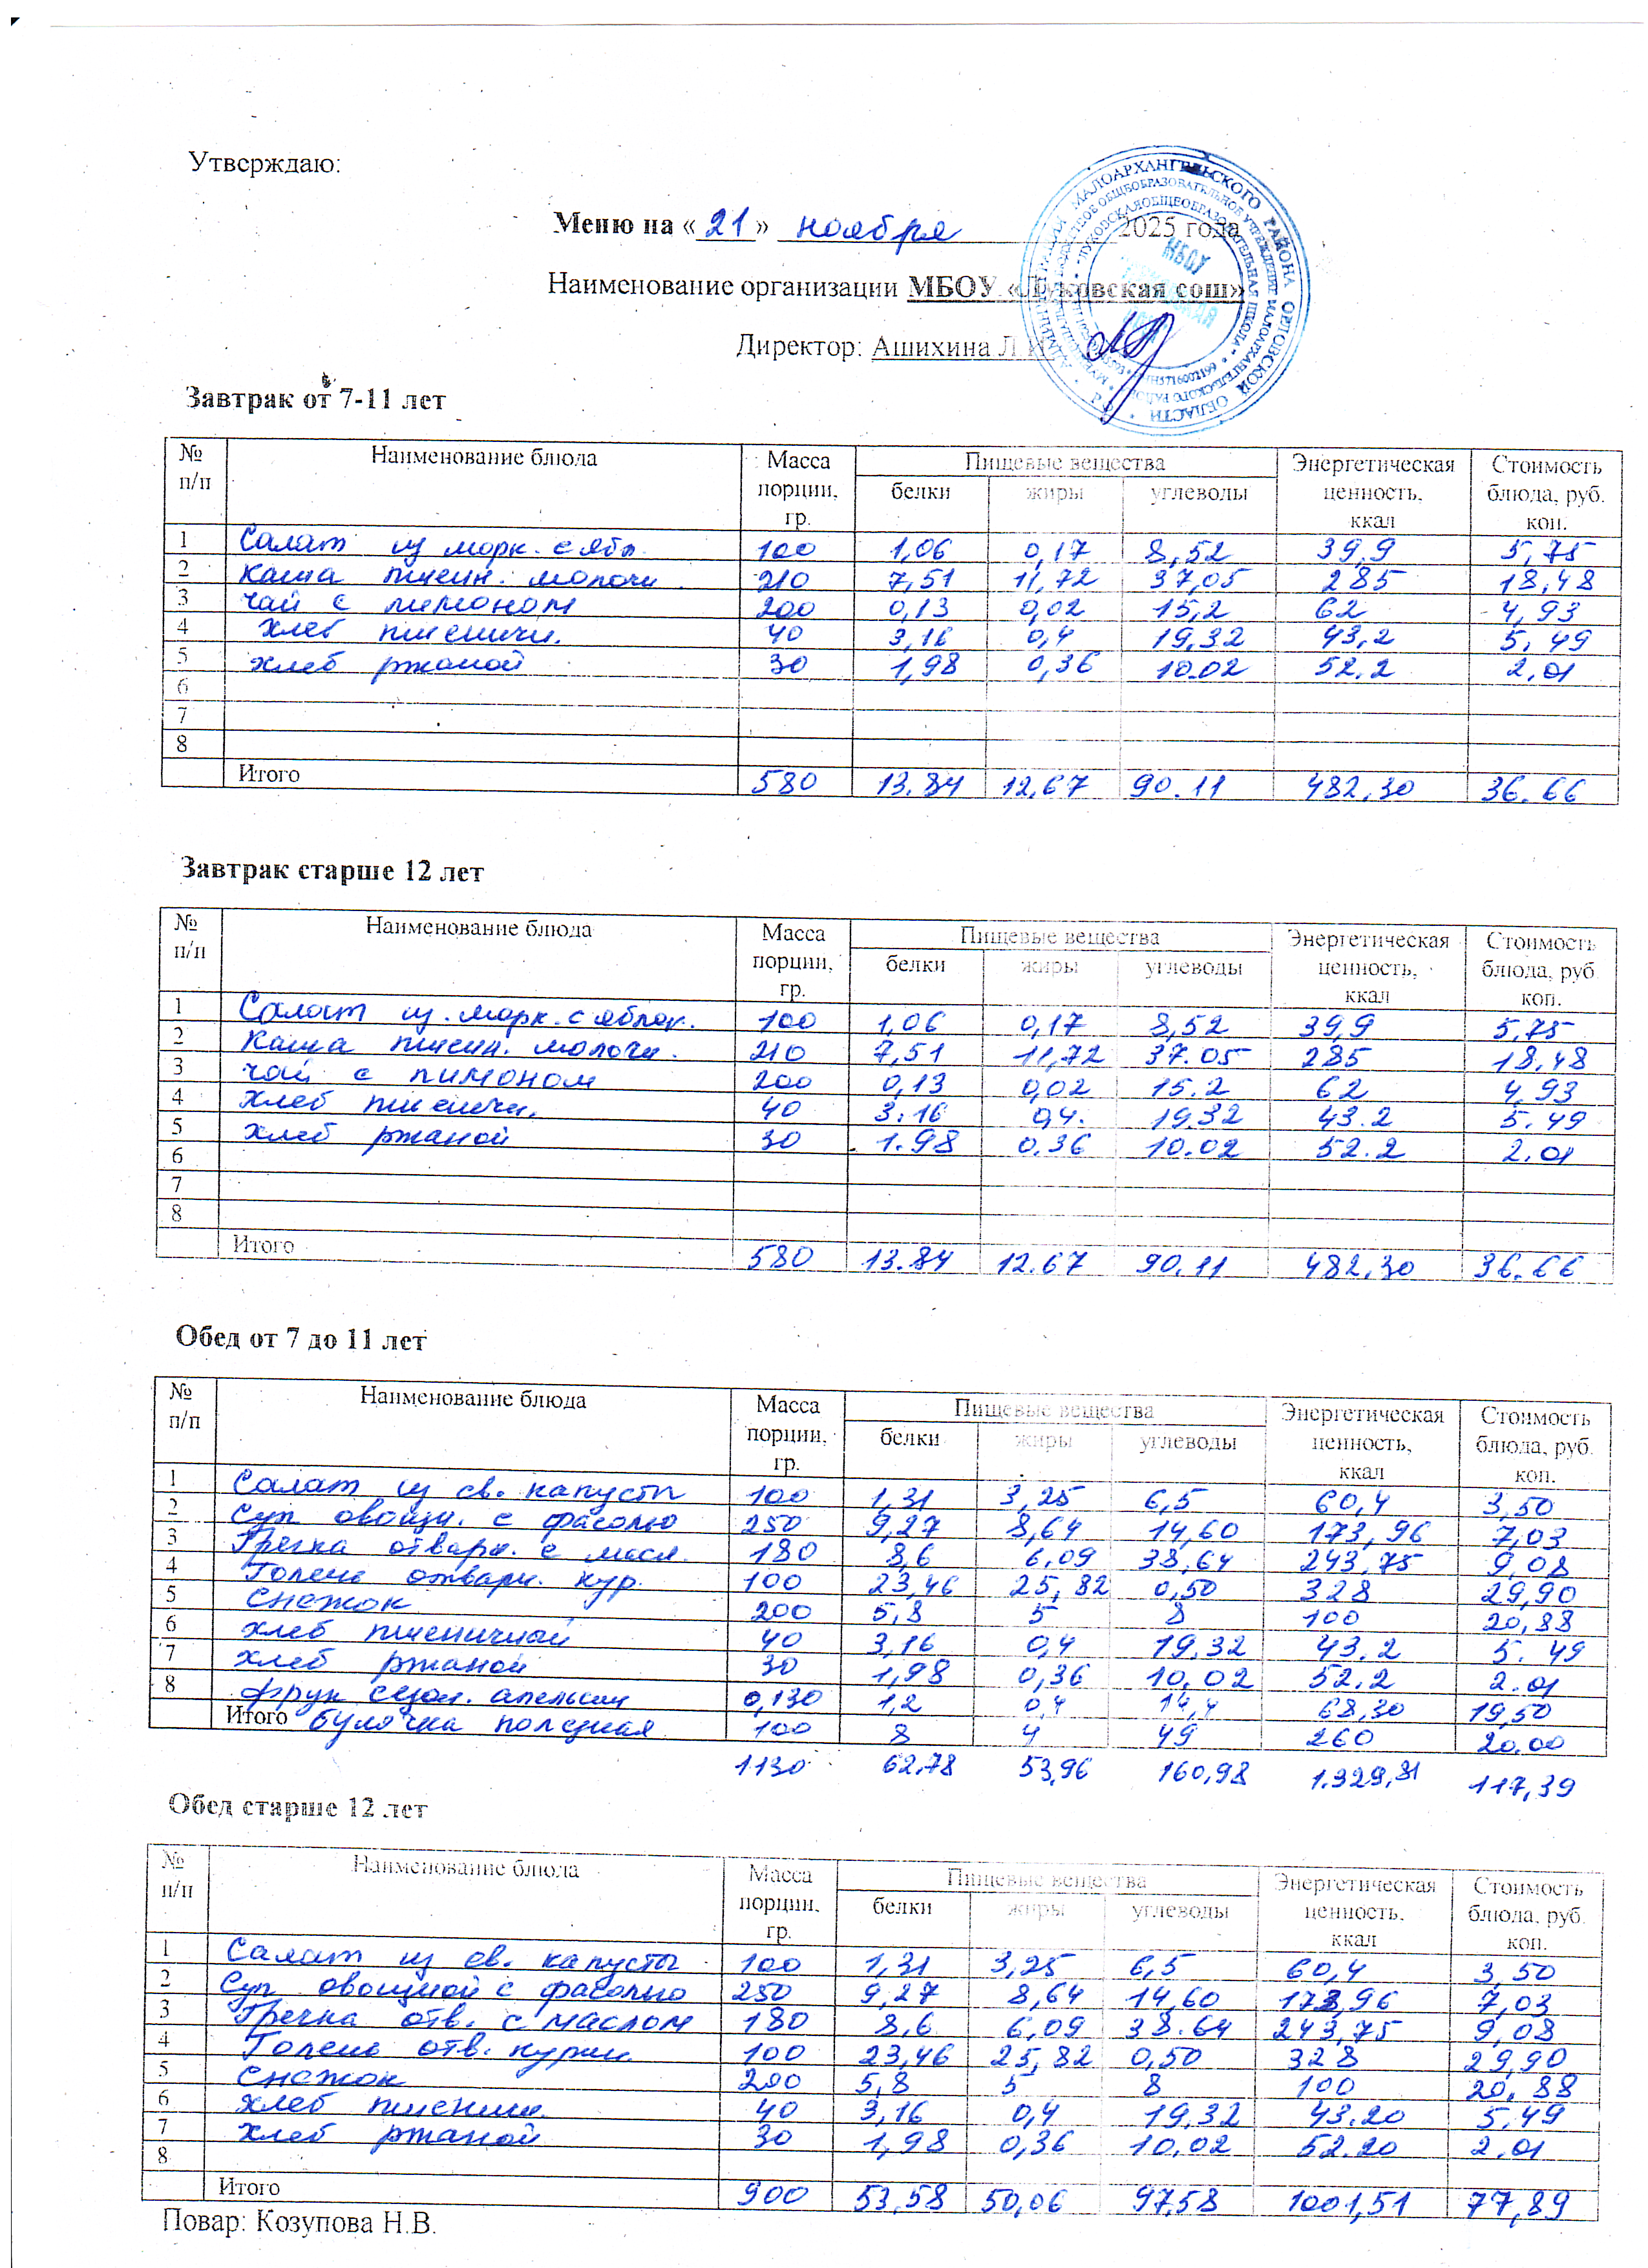 Утверждаю:
Меню на «21» ноября 2025 года
Наименование организации МБОУ «Луковская сош»
Директор: Ашихина Л.И.
Завтрак от 7-11 лет
№ п/п Наименование блюда Масса порции, гр. Пищевые вещества белки жиры углеводы Энергетическая ценность, ккал Стоимость блюда, руб. коп.
1 Салат из морк. с ябл. 100 1,06 0,17 8,52 39,9 5,75
2 Каша пшен. молочн. 210 7,51 11,72 37,05 285 18,48
3 чай с лимоном 200 0,13 0,02 15,2 62 4,93
4 хлеб пшеничн. 40 3,16 0,4 19,32 43,2 5,49
5 хлеб ржаной 30 1,98 0,36 10.02 52.2 2,01
6
7
8
Итого 580 13.84 12,67 90.11 482,30 36.66
Завтрак старше 12 лет
№ п/п Наименование блюда Масса порции, гр. Пищевые вещества белки жиры углеводы Энергетическая ценность, ккал Стоимость блюда, руб. коп.
1 Салат из. морк. с яблок. 100 1,06 0,17 8,52 39,9 5,75
2 Каша пшен. молочн. 210 7,51 11,72 37.05 285 18,48
3 чай с лимоном 200 0,13 0,02 15.2 62 4,93
4 хлеб пшеничн. 40 3.16 0,4. 19,32 43.2 5.49
5 хлеб ржаной 30 1.98 0.36 10.02 52.2 2,01
6
7
8
Итого 580 13.84 12.67 90.11 482,30 36.66
Обед от 7 до 11 лет
№ п/п Наименование блюда Масса порции, гр. Пищевые вещества белки жиры углеводы Энергетическая ценность, ккал Стоимость блюда, руб. коп.
1 Салат из св. капусты 100 1,31 3,25 6,5 60,4 3,50
2 Суп овощн. с фасолью 250 9,27 8,64 14,60 173,96 7,03
3 Гречка отварн. с масл. 180 8,6 6,09 38,64 243,75 9,08
4 Голень отварн. кур. 100 23,46 25,82 0,50 328 29,90
5 Снежок 200 5,8 5 8 100 20,88
6 хлеб пшеничной 40 3,16 0,4 19,32 43,2 5.49
7 хлеб ржаной 30 1,98 0,36 10,02 52,2 2.01
8 фрук сезон. апельсин 0,130 1,2 0,4 14,4 68,30 19,50
Итого булочка полезная 100 8 4 49 260 20.00
1130 62,78 53,96 160,98 1.329,81 117,39
Обед старше 12 лет
№ п/п Наименование блюда Масса порции, гр. Пищевые вещества белки жиры углеводы Энергетическая ценность, ккал Стоимость блюда, руб. коп.
1 Салат из св. капусты 100 1,31 3,25 6,5 60,4 3,50
2 Суп овощной с фасолью 250 9,27 8,64 14,60 173,96 7,03
3 Гречка отв. с маслом 180 8,6 6,09 38.64 243,75 9,08
4 Голень отв. курин. 100 23,46 25,82 0,50 328 29,90
5 Снежок 200 5,8 5 8 100 20,88
6 хлеб пшеничн. 40 3,16 0,4 19,32 43.20 5.49
7 хлеб ржаной 30 1,98 0,36 10,02 52.20 2,01
8
Итого 900 53,58 50,06 97,58 1001,51 77,89
Повар: Козупова Н.В.